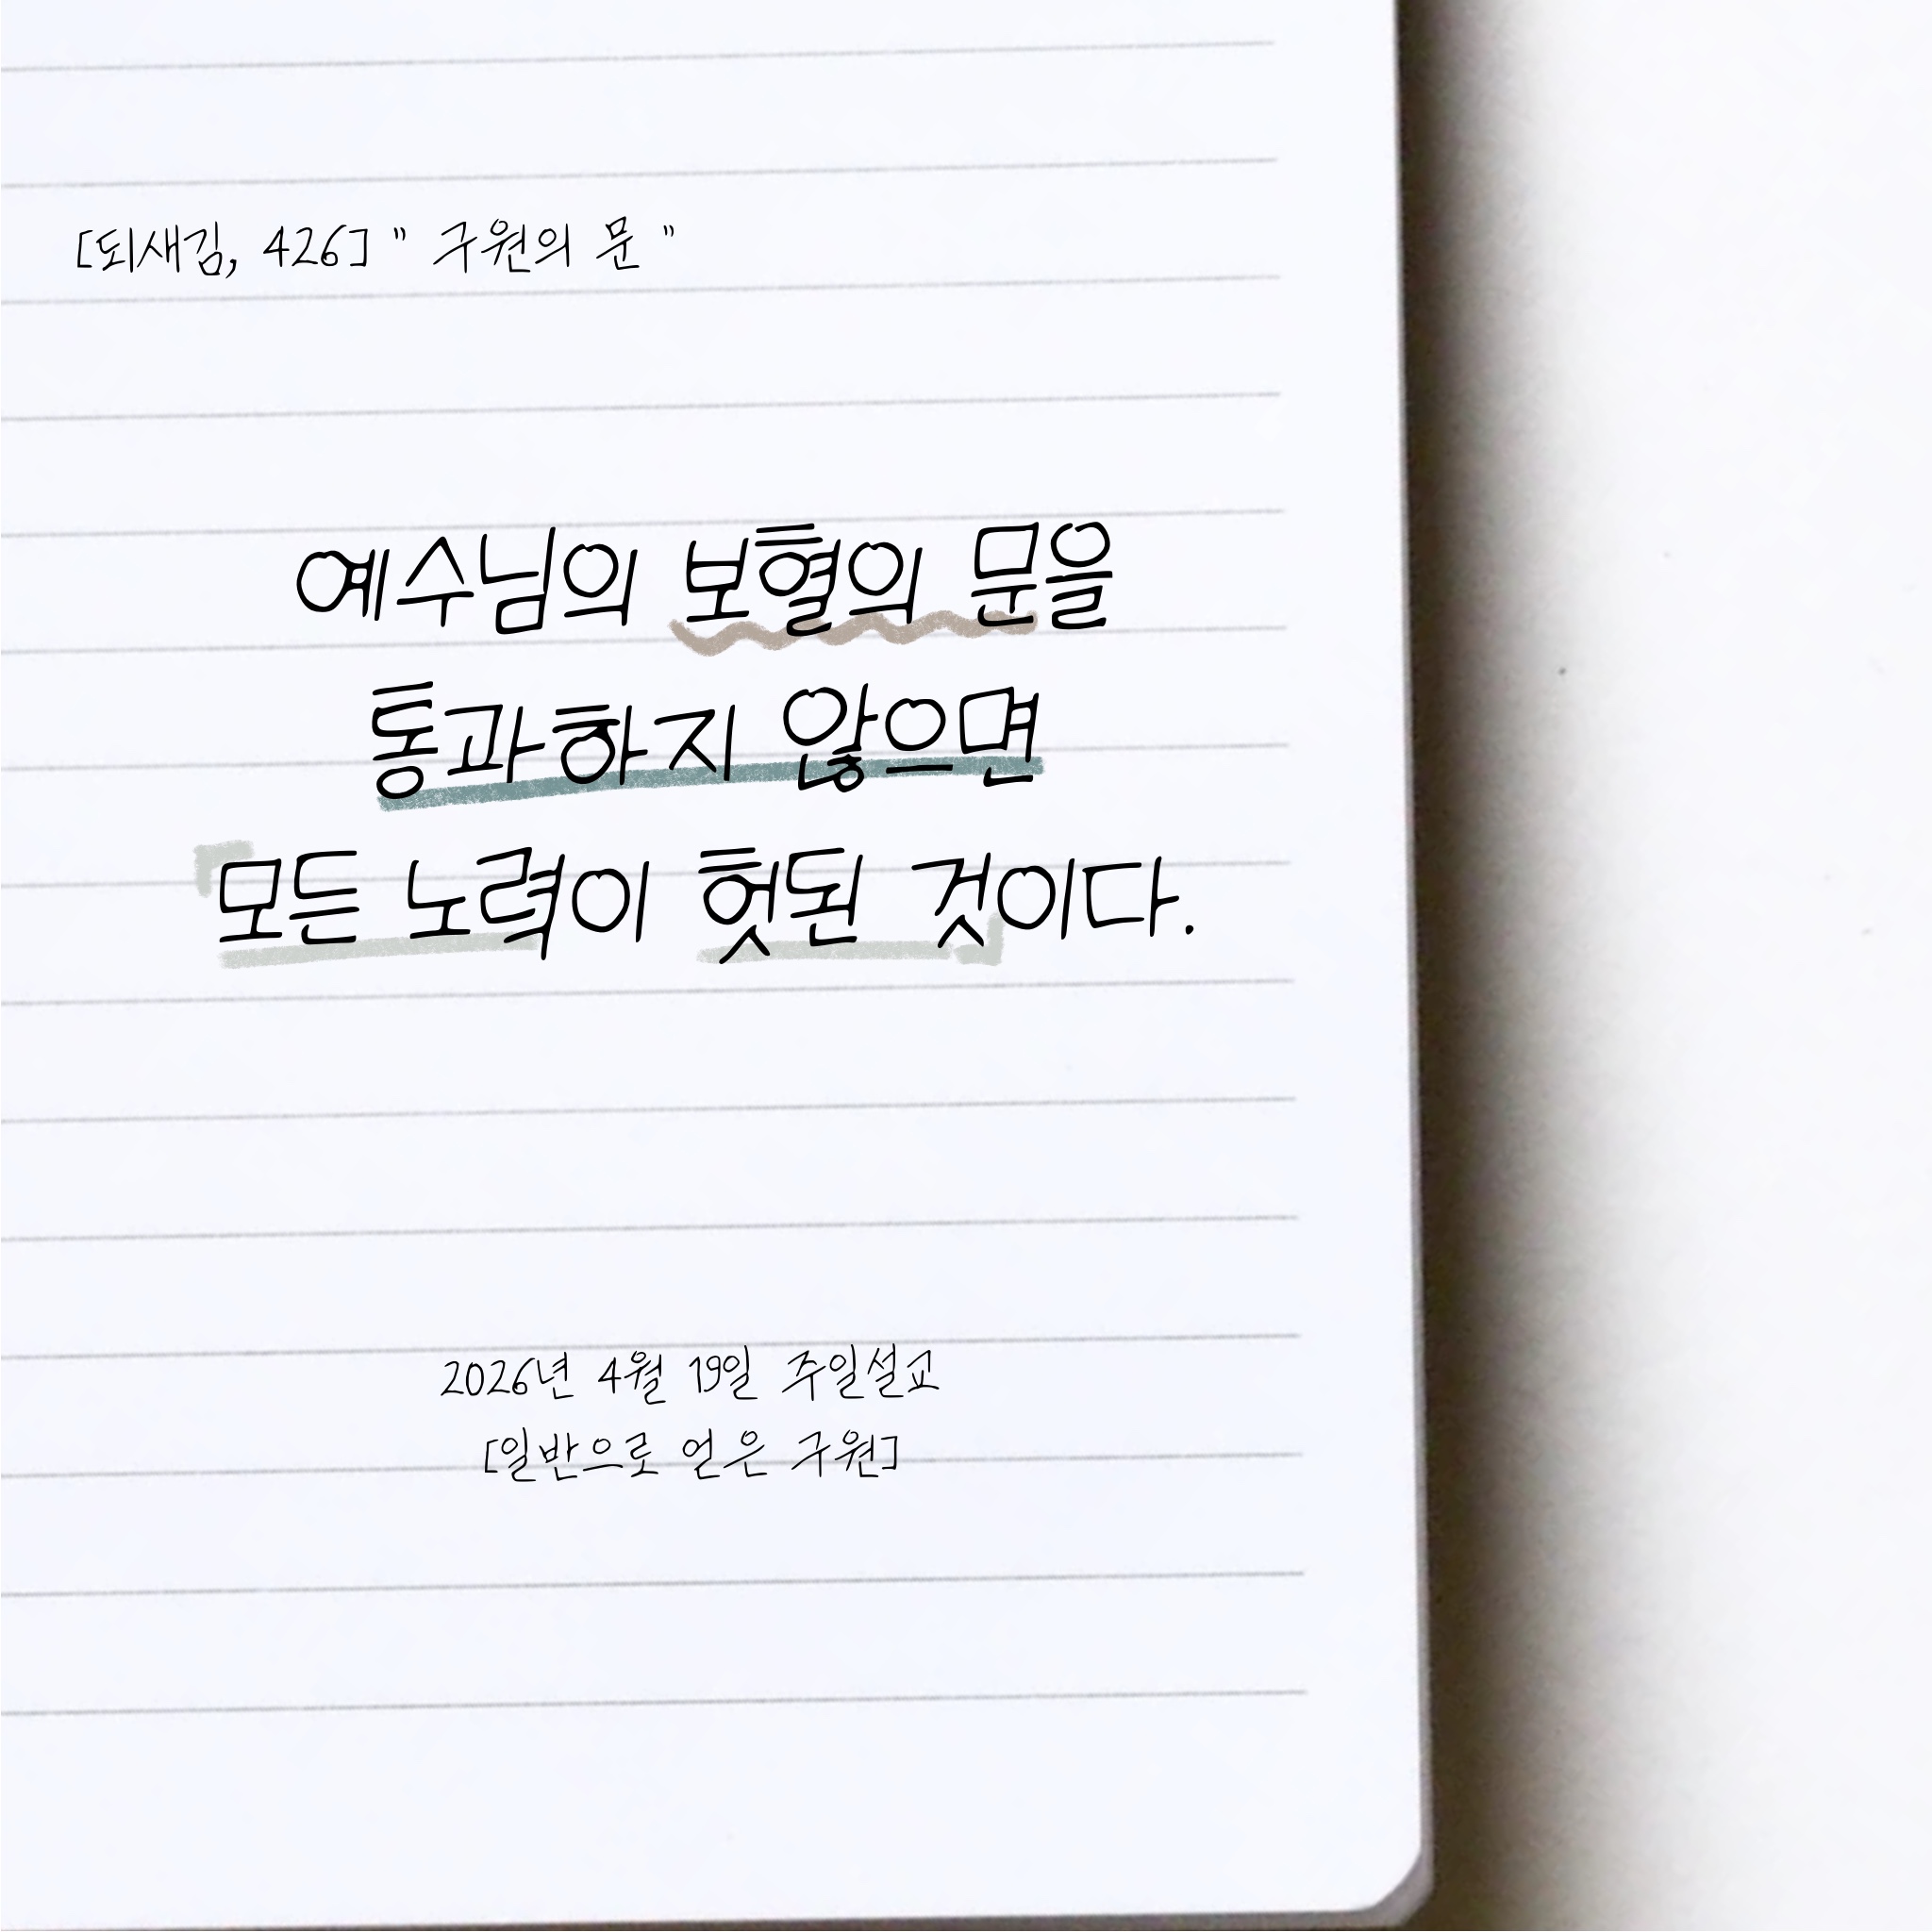 [되새김, 426] " 구원의 문 "
예수님의 보혈의 문을
통과하지 않으면
모든 노력이 헛된 것이다.
2026년 4월 19일 주일설교
[일반으로 얻은 구원]